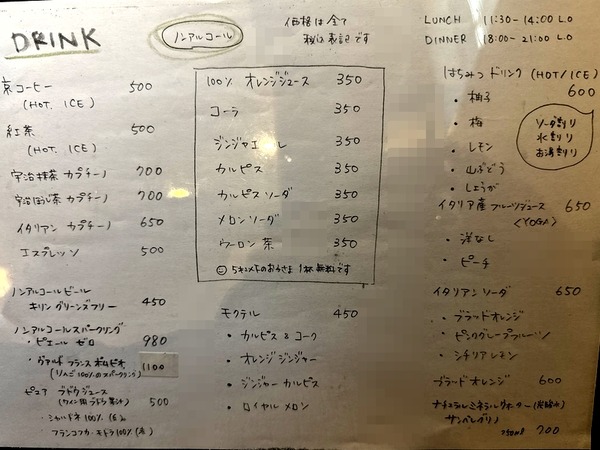 DRINK
ノンアルコール
価格は全て
税込表記です
LUNCH 11:30-14:00 L.O
DINNER 18:00-21:00 L.O
京コーヒー 500
(HOT, ICE)
紅茶 500
(HOT, ICE)
宇治抹茶カプチーノ 700
宇治ほうじ茶カプチーノ 700
イタリアンカプチーノ 650
エスプレッソ 500
ノンアルコールビール
キリングリーンズフリー 450
ノンアルコールスパークリング
・ピエール ゼロ 980
・ヴァルド フランス 1100
(りんご100%のスパークリング)
ピュア ブドウジュース
(ワイン用ブドウ果汁) 500
・シャルドネ100% (白)
100% (赤)
100% オレンジジュース 350
コーラ 350
ジンジャエール 350
カルピス 350
カルピスソーダ 350
メロンソーダ 350
ウーロン茶 350
1杯無料です
モクテル 450
・カルピス&コーク
・オレンジジンジャー
・ジンジャーカルピス
・ロイヤルメロン
はちみつドリンク (HOT/ICE)
600
・柚子
・梅
・レモン
・山ぶどう
・しょうが
ソーダ割り
水割り
お湯割り
イタリア産フルーツジュース 650
<YOGA>
・洋なし
・ピーチ
イタリアンソーダ 650
・ブラッドオレンジ
・ピンクグレープフルーツ
・シチリアレモン
ブラッドオレンジ 600
ナチュラルミネラルウォーター (炭酸水)
サンペレグリノ
700